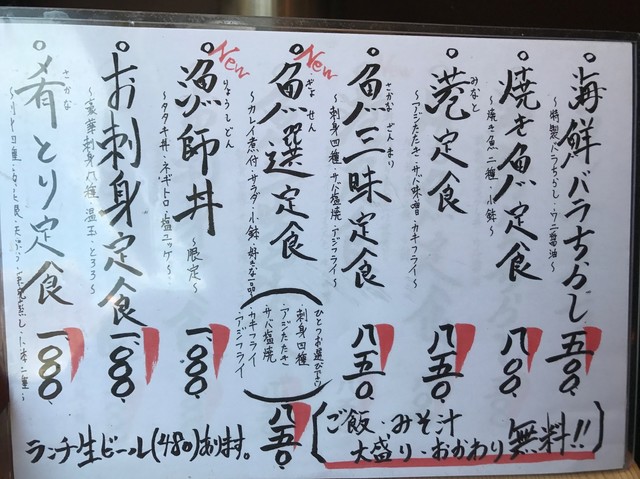 海鮮バラちらし 五〇〇
～特製バラちらし・ウニ醤油～
焼き魚定食 八〇〇
～焼き魚二種・小鉢～
みなと
港定食 八五〇
～アジたたき・サバ味噌・カキフライ～
さかな ざんまい
魚三昧定食 八五〇
～刺身四種・サバ塩焼・アジフライ～
New
ぎょ せん
魚選定食
～カレイ煮付・サラダ・小鉢・好きな一品～
ひとつお選び下さい
・刺身四種
・アジたたき
・サバ塩焼
・カキフライ
・アジフライ
八五〇
New
りょうしどん
漁師丼 一、〇〇〇
～限定～
～タタキ丼・ネギトロ・塩ユッケ～
お刺身定食 一、〇〇〇
～豪華刺身八種・温玉・とろろ～
さかな
肴とり定食 一、〇〇〇
ランチ生ビール(480)あります。
ご飯・みそ汁
大盛り・おかわり無料!!